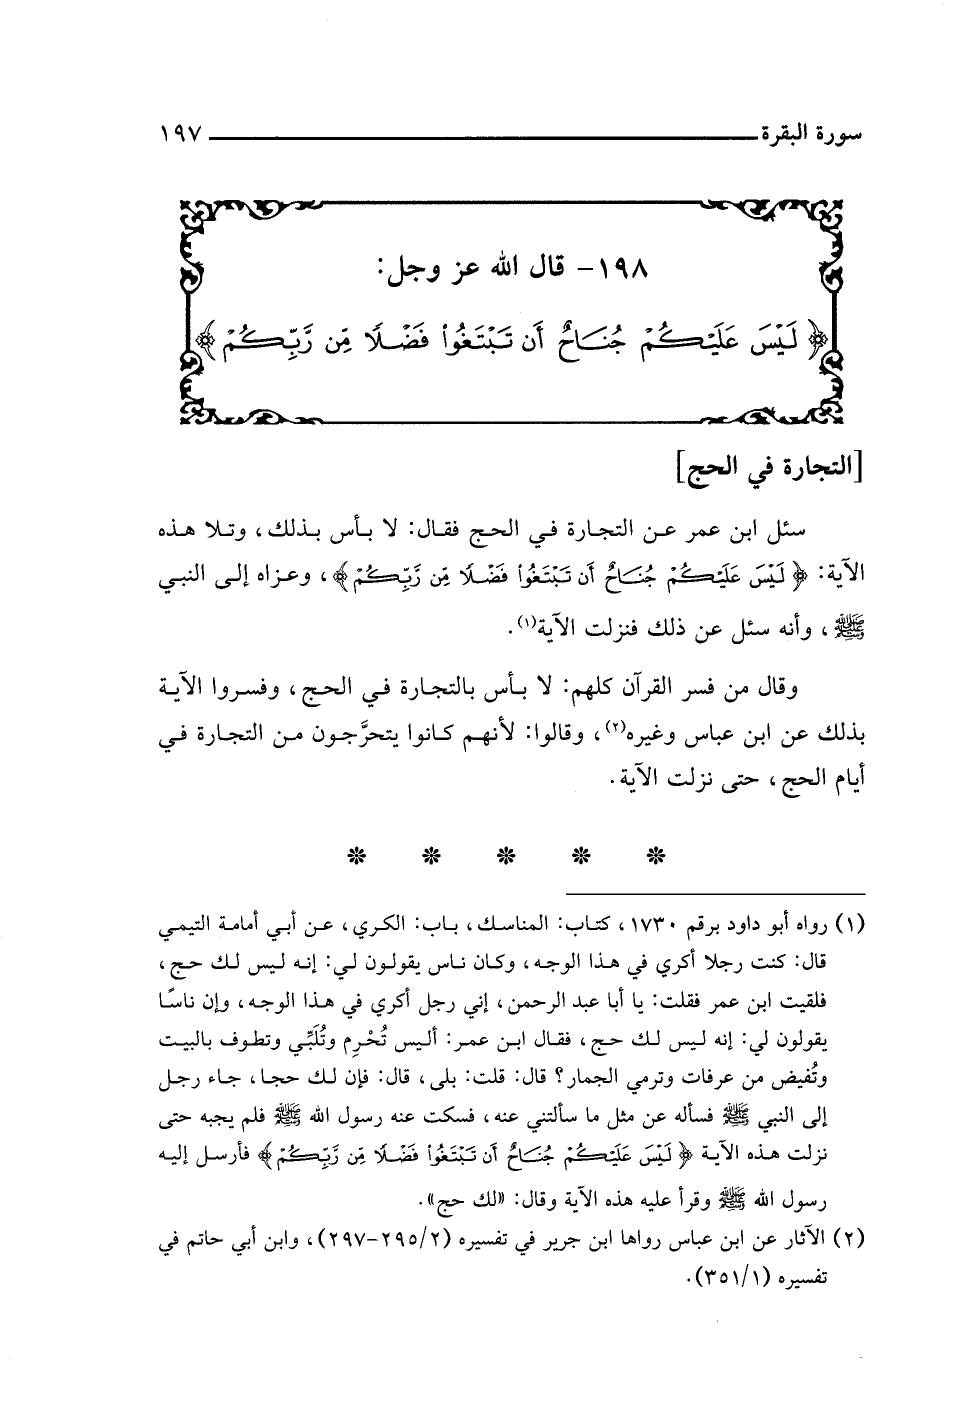 سورة البقرة ١٩٧
١٩٨- قال الله عز وجل:
﴿ لَيْسَ عَلَيْكُمْ جُنَاحٌ أَن تَبْتَغُواْ فَضْلًا مِّن رَّبِّكُمْ ﴾
[التجارة في الحج]
سئل ابن عمر عن التجارة في الحج فقال: لا بأس بذلك، وتلا هذه
الآية: ﴿ لَيْسَ عَلَيْكُمْ جُنَاحٌ أَن تَبْتَغُواْ فَضْلًا مِّن رَّبِّكُمْ ﴾، وعزاه إلى النبي
ﷺ، وأنه سئل عن ذلك فنزلت الآية(١).
وقال من فسر القرآن كلهم: لا بأس بالتجارة في الحج، وفسروا الآية
بذلك عن ابن عباس وغيره(٢)، وقالوا: لأنهم كانوا يتحرَّجون من التجارة في
أيام الحج، حتى نزلت الآية.
(١) رواه أبو داود برقم ١٧٣٠، كتاب: المناسك، باب: الكري، عن أبي أمامة التيمي
قال: كنت رجلا أكري في هذا الوجه، وكان ناس يقولون لي: إنه ليس لك حج،
فلقيت ابن عمر فقلت: يا أبا عبد الرحمن، إني رجل أكري في هذا الوجه، وإن ناسًا
يقولون لي: إنه ليس لك حج، فقال ابن عمر: أليس تُحْرِم وتُلَبِّي وتطوف بالبيت
وتُفيض من عرفات وترمي الجمار؟ قال: قلت: بلى، قال: فإن لك حجا، جاء رجل
إلى النبي ﷺ فسأله عن مثل ما سألتني عنه، فسكت عنه رسول الله ﷺ فلم يجبه حتى
نزلت هذه الآية ﴿ لَيْسَ عَلَيْكُمْ جُنَاحٌ أَن تَبْتَغُواْ فَضْلًا مِّن رَّبِّكُمْ ﴾ فأرسل إليه
رسول الله ﷺ وقرأ عليه هذه الآية وقال: «لك حج».
(٢) الآثار عن ابن عباس رواها ابن جرير في تفسيره (٢/ ٢٩٥-٢٩٧)، وابن أبي حاتم في
تفسيره (١/ ٣٥١).